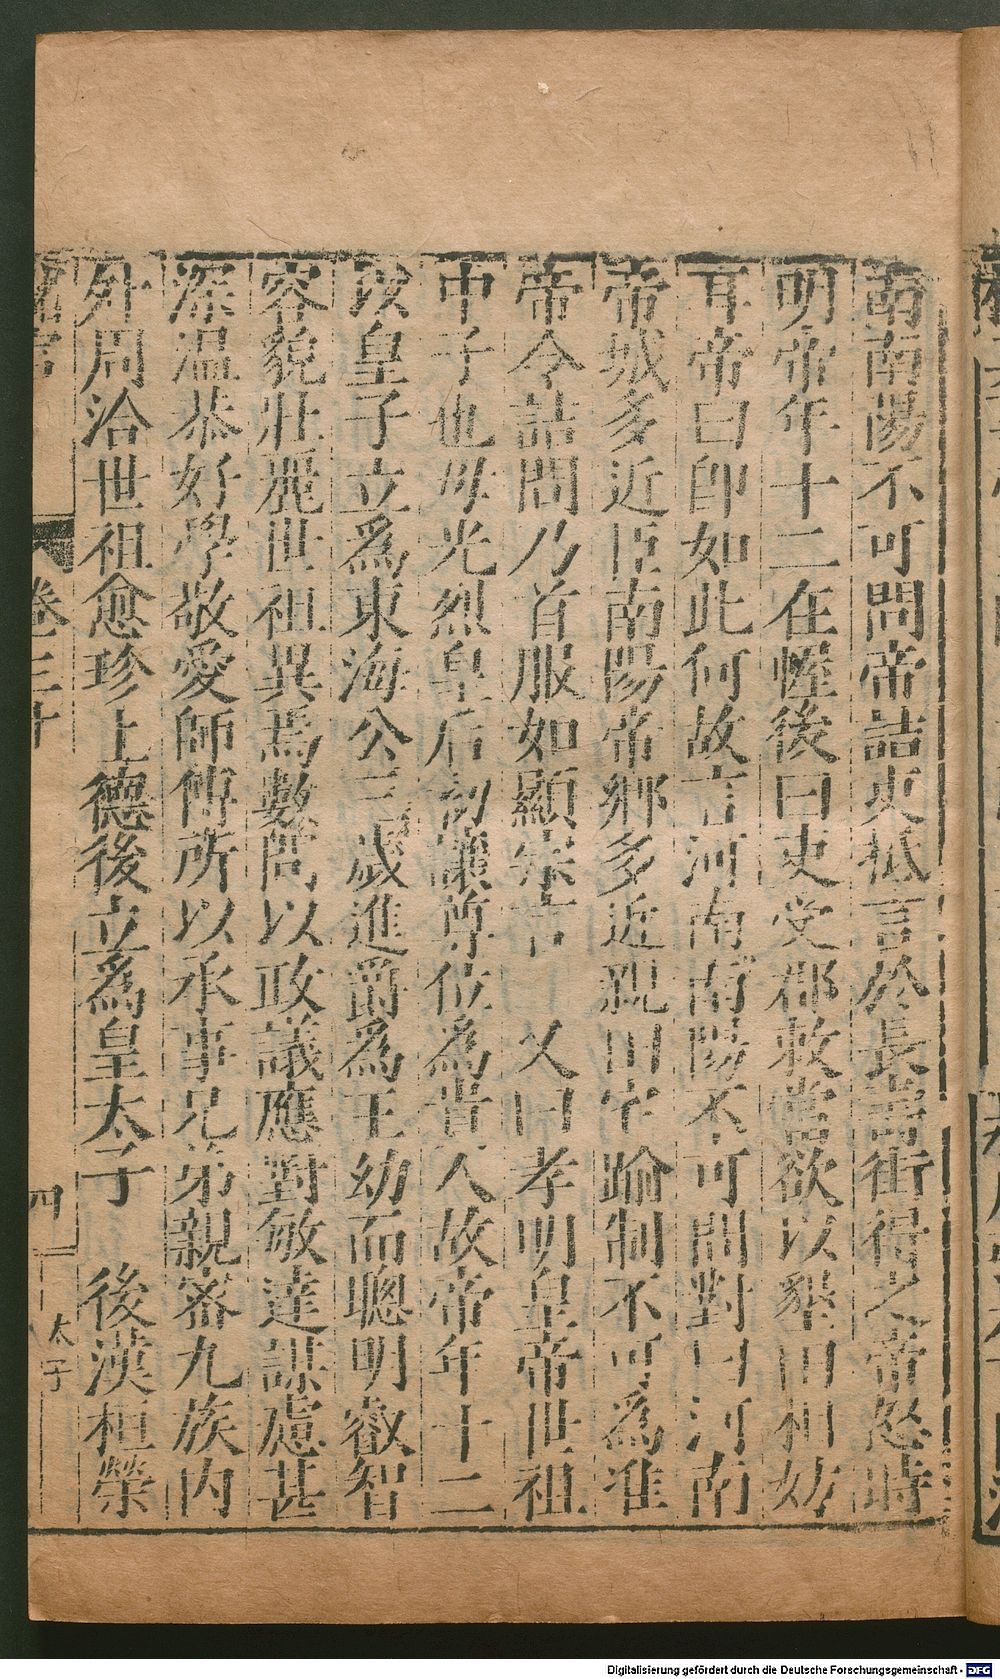 南南陽不可問帝詰吏吏抵言於長壽街得之帝怒時
明帝年十二在幄後曰吏受郡敕當欲以墾田相妨
耳帝曰即如此何故言河南南陽不可問對曰河南
帝城多近臣南陽帝鄉多近親田宅踰制不可為准
帝令詰問乃首服如顯宗言 又曰孝明皇帝世祖
中子也母光烈皇后初讓尊位為貴人故帝年十二
以皇子立為東海公三歲進爵為王幼而聰明叡智
容貌壯麗世祖異焉數問以政議應對敏達謀慮甚
深溫恭好學敬愛師傅所以承事兄弟親密九族內
外周洽世祖愈珍上德後立為皇太子 後漢桓榮
卷三十
四
太子
Digitalisierung gefördert durch die Deutsche Forschungsgemeinschaft - DFG